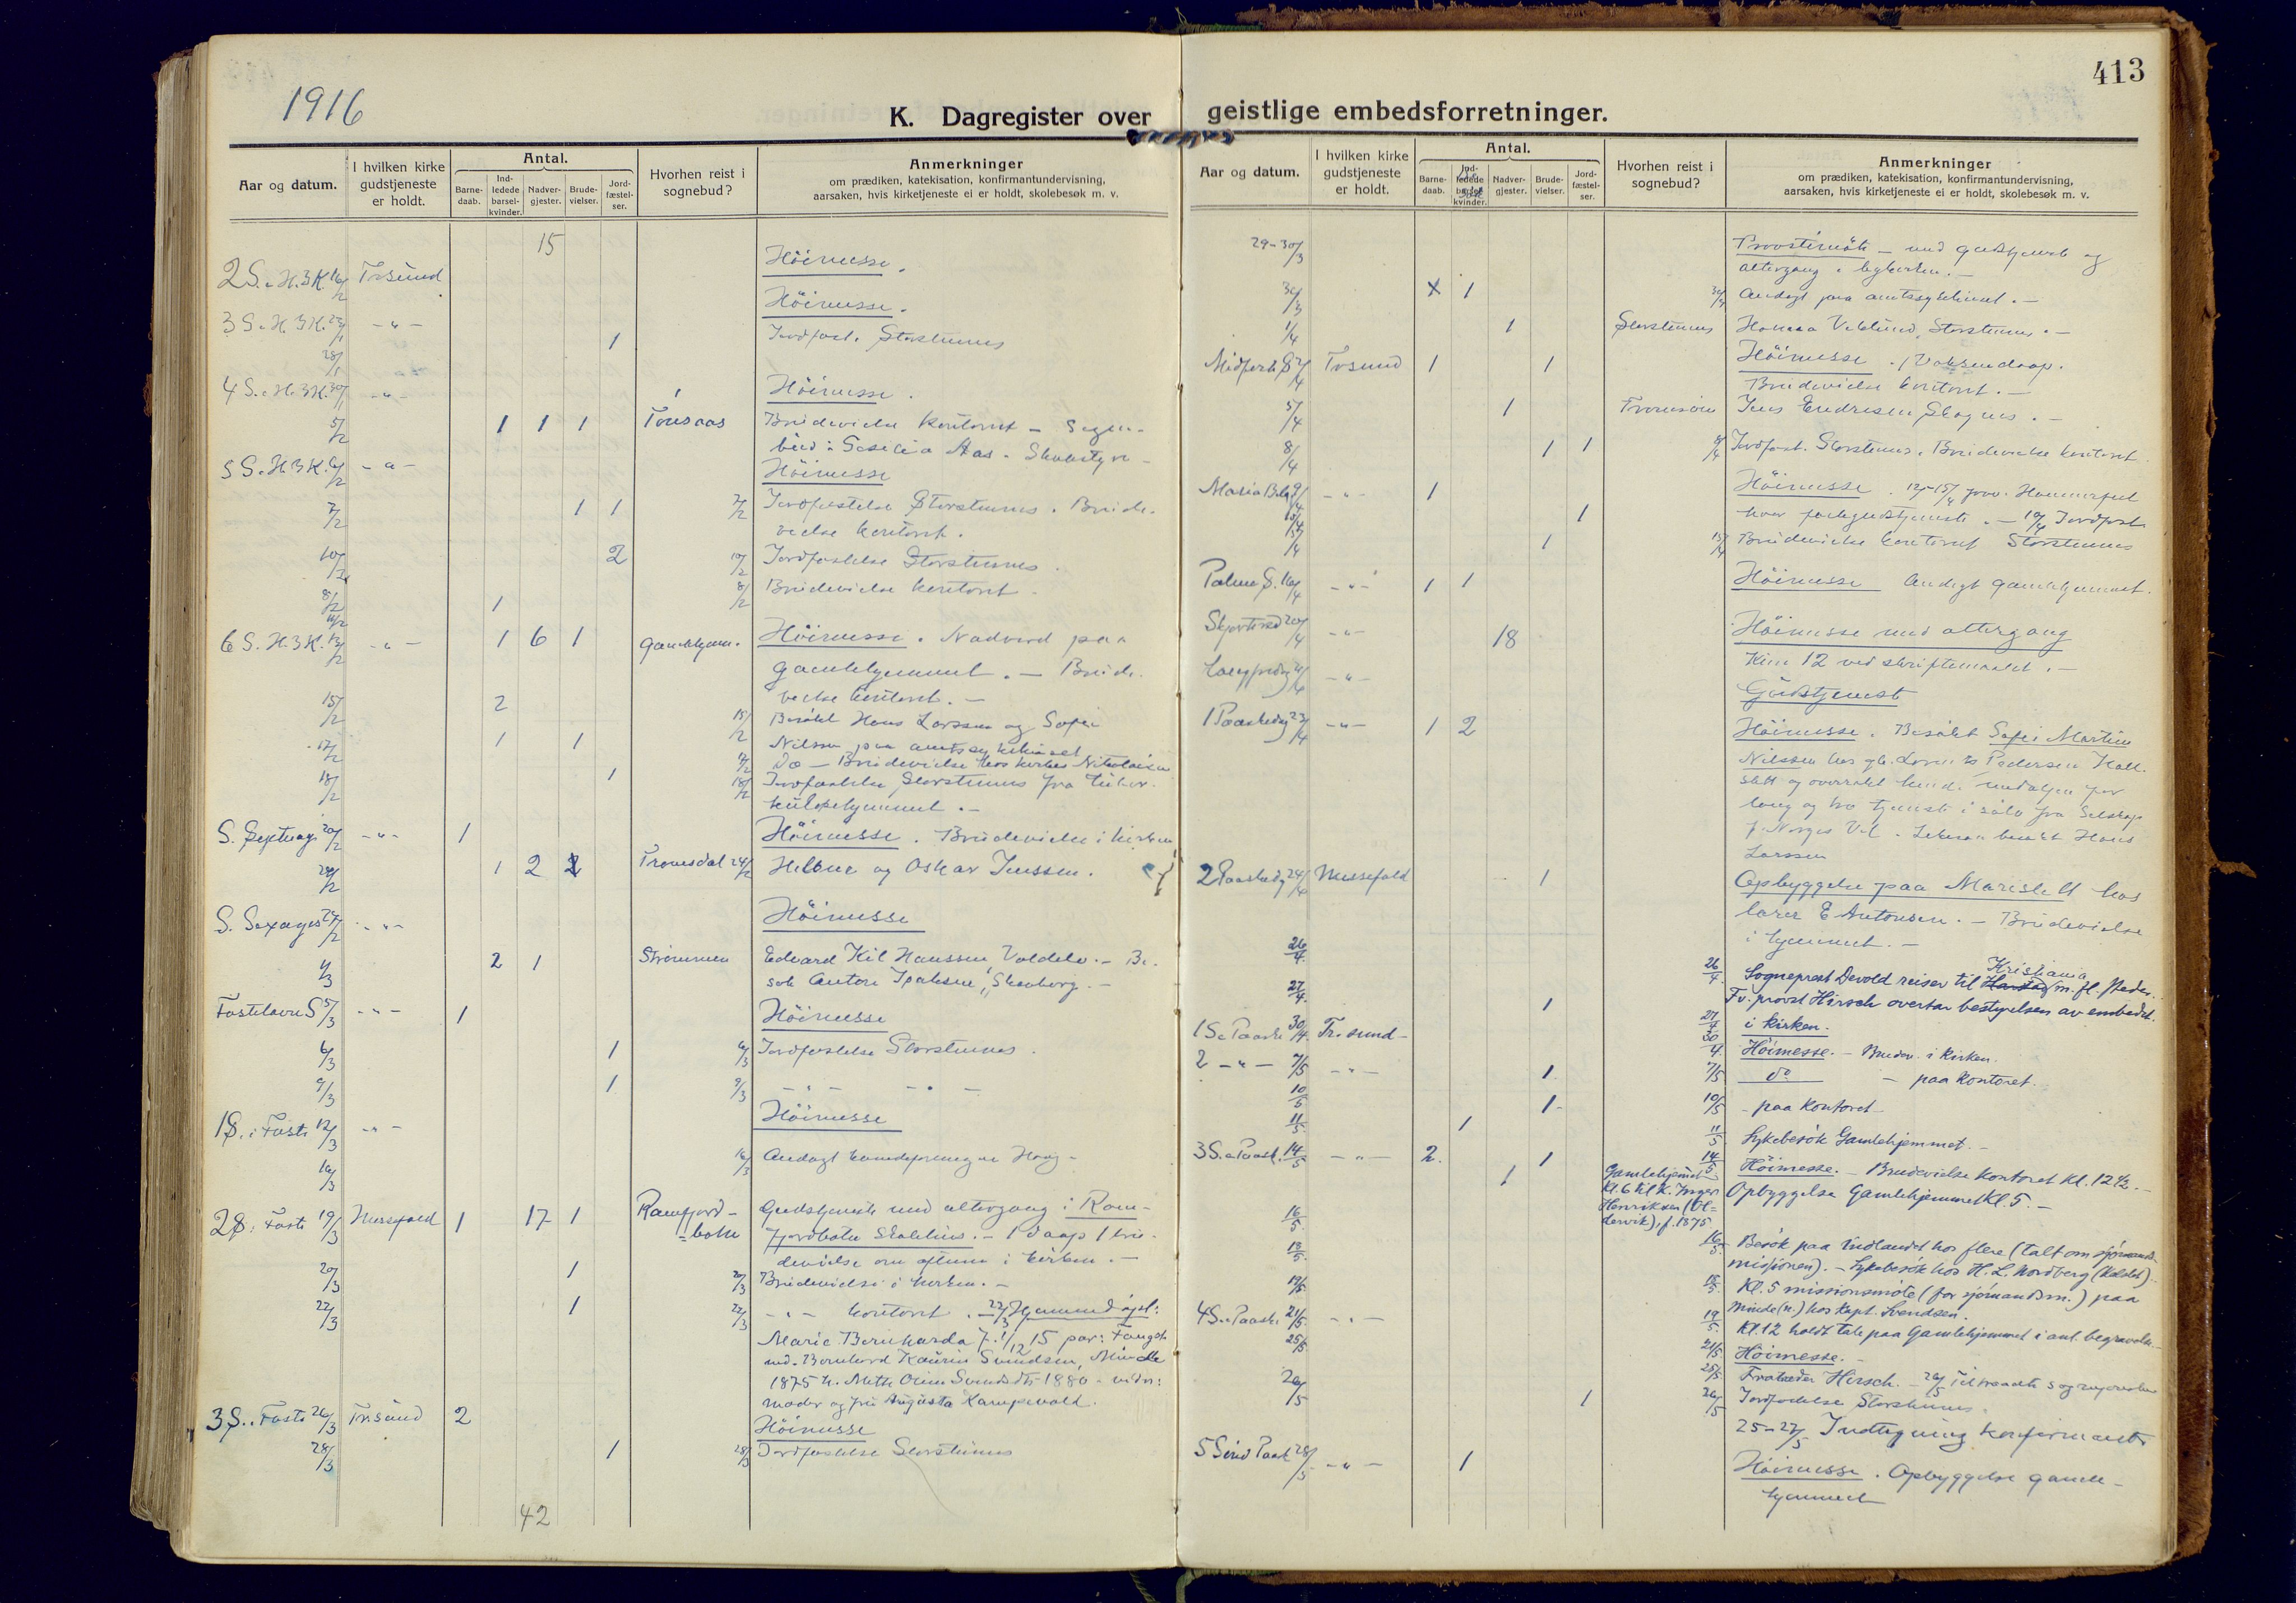 1916
K. Dagregister over
Aar og datum.
I hvilken kirke gudstjeneste er holdt.
Antal.
Barne-daab.
Ind-ledede barsel-kvinder.
Nadver-gjester.
Brude-vielser.
Jord-fæstel-ser.
Hvorhen reist i sognebud?
Anmerkninger
om prædiken, katekisation, konfirmantundervisning,
aarsaken, hvis kirketjeneste ei er holdt, skolebesøk m. v.
15
Höimesse.
2 S. e. H. 3 K. Tr.sund
Höimesse.
3 S. e. H. 3 K. -"-
28/1 1 Jordfæst. Storstennes
4 S. e. H. 3 K. 30/1 -"- Höimesse.
5/2 1 1 1 Tonsaas Brudevielse kontoret - Sogne-
bud: Aas.
5 S. e. H. 3 K. 6/2 -"- Höimesse
7/2 1 1 7/2 Jordfæstelse Storstennes. Brude-
vielse kontoret.
10/2 2 10/2 Jordfæstelse Storstennes.
8/2 1 8/2 Brudevielse kontoret.
6 S. H. 3 K. 13/2 -"- 1 6 1 Gamlehjem. Höimesse. Nadverd paa
Gamlehjemmet. - Brude-
vielse kontoret. -
15/2 2 15/2 Besøkt Hans Larssen og Sofie
Nilssen paa amtssykehuset
17/2 1 1 17/2 Do - Brudevielse hos kirkev. Nikolaisen
18/2 1 18/2 Jordfæstelse Storstennes fra tuber-
kulosehjemmet. -
S. Septuag. 20/2 -"- 1 Höimesse. Brudevielse i kirken
24/2 1 2 Tromsdal 24/2 Helene og Oskar Jenssen.
S. Sexages. 27/2 -"- Höimesse
4/3 2 1 Strømmen Edvard Kil Hanssen, Voldelv. - Be-
søk Anton
Fastelavns S 5/3 -"- 1 Höimesse
6/3 1 6/3 Jordfæstelse Storstennes.
9/3 1 9/3 -"- -"-
1 S. i Faste 12/3 -"- Höimesse
16/3 16/3 Andagt
2 S. i Faste 19/3 Messefold 1 17 1 Ramfjord-botn Gudstjeneste med altergang i Ram-
fjordbotn Skolehus. - 1 daap 1 bru-
devielse om aftenen i kirken. -
20/3 1 20/3 Brudevielse i kirken. -
22/3 1 22/3 -"- kontoret. 22/3 Hjemmedøpt:
Marie Bernharda f. 1/12 15 par: Fangst-
md. Bernhard Kaurin Svendsen, Minde
1875 h. Mette Oline Svendsdtr 1880 - vidn:
moder og fru Augusta Kampevold.
3 S. i Faste 26/3 Tr.sund 2 Höimesse
28/3 1 28/3 Jordfæstelse Storstennes
42
413
geistlige embedsforretninger.
Aar og datum.
I hvilken kirke gudstjeneste er holdt.
Antal.
Barne-daab.
Ind-ledede barsel-kvinder.
Nadver-gjester.
Brude-vielser.
Jord-fæstel-ser.
Hvorhen reist i sognebud?
Anmerkninger
om prædiken, katekisation, konfirmantundervisning,
aarsaken, hvis kirketjeneste ei er holdt, skolebesøk m. v.
29-30/3 Provstimöte - med gudstjeneste og
altergang i bykirken. -
30/3 1 30/3 Andagt paa amtssykehuset. -
1/4 1 Storstennes Storstennes. -
Midfaste S 2/4 Tr.sund 1 1 Höimesse. 1 Voksendaap.
Brudevielse kontoret. -
5/4 1 Tromsöen Jens Endresen Skognes. -
8/4 1 1 8/4 Jordfæst. Storstennes. Brudevielse kontoret.
Maria B. dag 9/4 -"- 1 Höimesse. 12-15/4 prov. Hammerfest
hver fastegudstjeneste. - 10/4 Jordfæst.
15/4 1 15/4 Brudevielse kontoret Storstennes
Palme S. 16/4 -"- 1 1 Höimesse Andagt gamlehjemmet.
Skjærtorsd. 20/4 -"- 18 Höimesse med altergang
Kun 12 ved skriftemaalet. -
Langfredag 21/4 -"- Gudstjeneste
1 Paaskedag 23/4 -"- 1 2 Höimesse. Besökt Sofie Martine
Nilssen hos gb. Lorents Pedersen
og overrakt hende medaljen for
lang og tro tjeneste i sölv fra Selskap
f. Norges Vel. Hans
Larssen
2 Paaskedag 24/4 Messefold 1 Opbyggelse paa hos
lærer E Antonsen. - Brudevielse
i hjemmet. -
26/4. 26/4. Sogneprest Devold reiser til Kristiania m. fl. steder.
Fv. provst Hirsch overtar bestyrelsen av embedet.
27/4. 1 27/4 i kirken.
1 S. e. Paaske 30/4. Tr.sund- 30/4. Höimesse. - Brudev. i kirken.
2 -"- 7/5 -"- 1. 7/5 do - paa kontoret.
10/5 1. 10/5 - paa kontoret -
11/5. 1 11/5 Sykebesök Gamlehjemmet. -
3 S. e. Paask. 14/5 -"- 2. 1 14/5 Höimesse. - Brudevielse kontoret Kl. 12 1/2. -
1 Gamlehjemmet Kl. 6 til K. Inger Henriksen f. 1875. Opbyggelse Gamlehjemmet Kl. 5. -
16/5. 16/5. Besök paa Indlandet hos flere (talt om sjömands-
misjonen). - Sykebesök hos H. L. Nordberg
Kl. 5 missionsmöte (for sjömandsm.) paa
Minde(n.) hos Kapt. Svendsen.
19/5. 19/5. Kl. 12 holdt tale paa Gamlehjemmet i anl. begravelse -
4 S. e. Paaske 21/5. -"- 21/5 Höimesse. -
25/5 25/5. Fratræder Hirsch. - 26/5 Tiltraadte sogneprest
26/5 1 26/5 Jordfæstelse Storstennes.
25-27/5 Indtegning konfirmanter
5 S. e. Paask 28/5 -"- 1 Höimesse. Opbyggelse gamle-
hjemmet